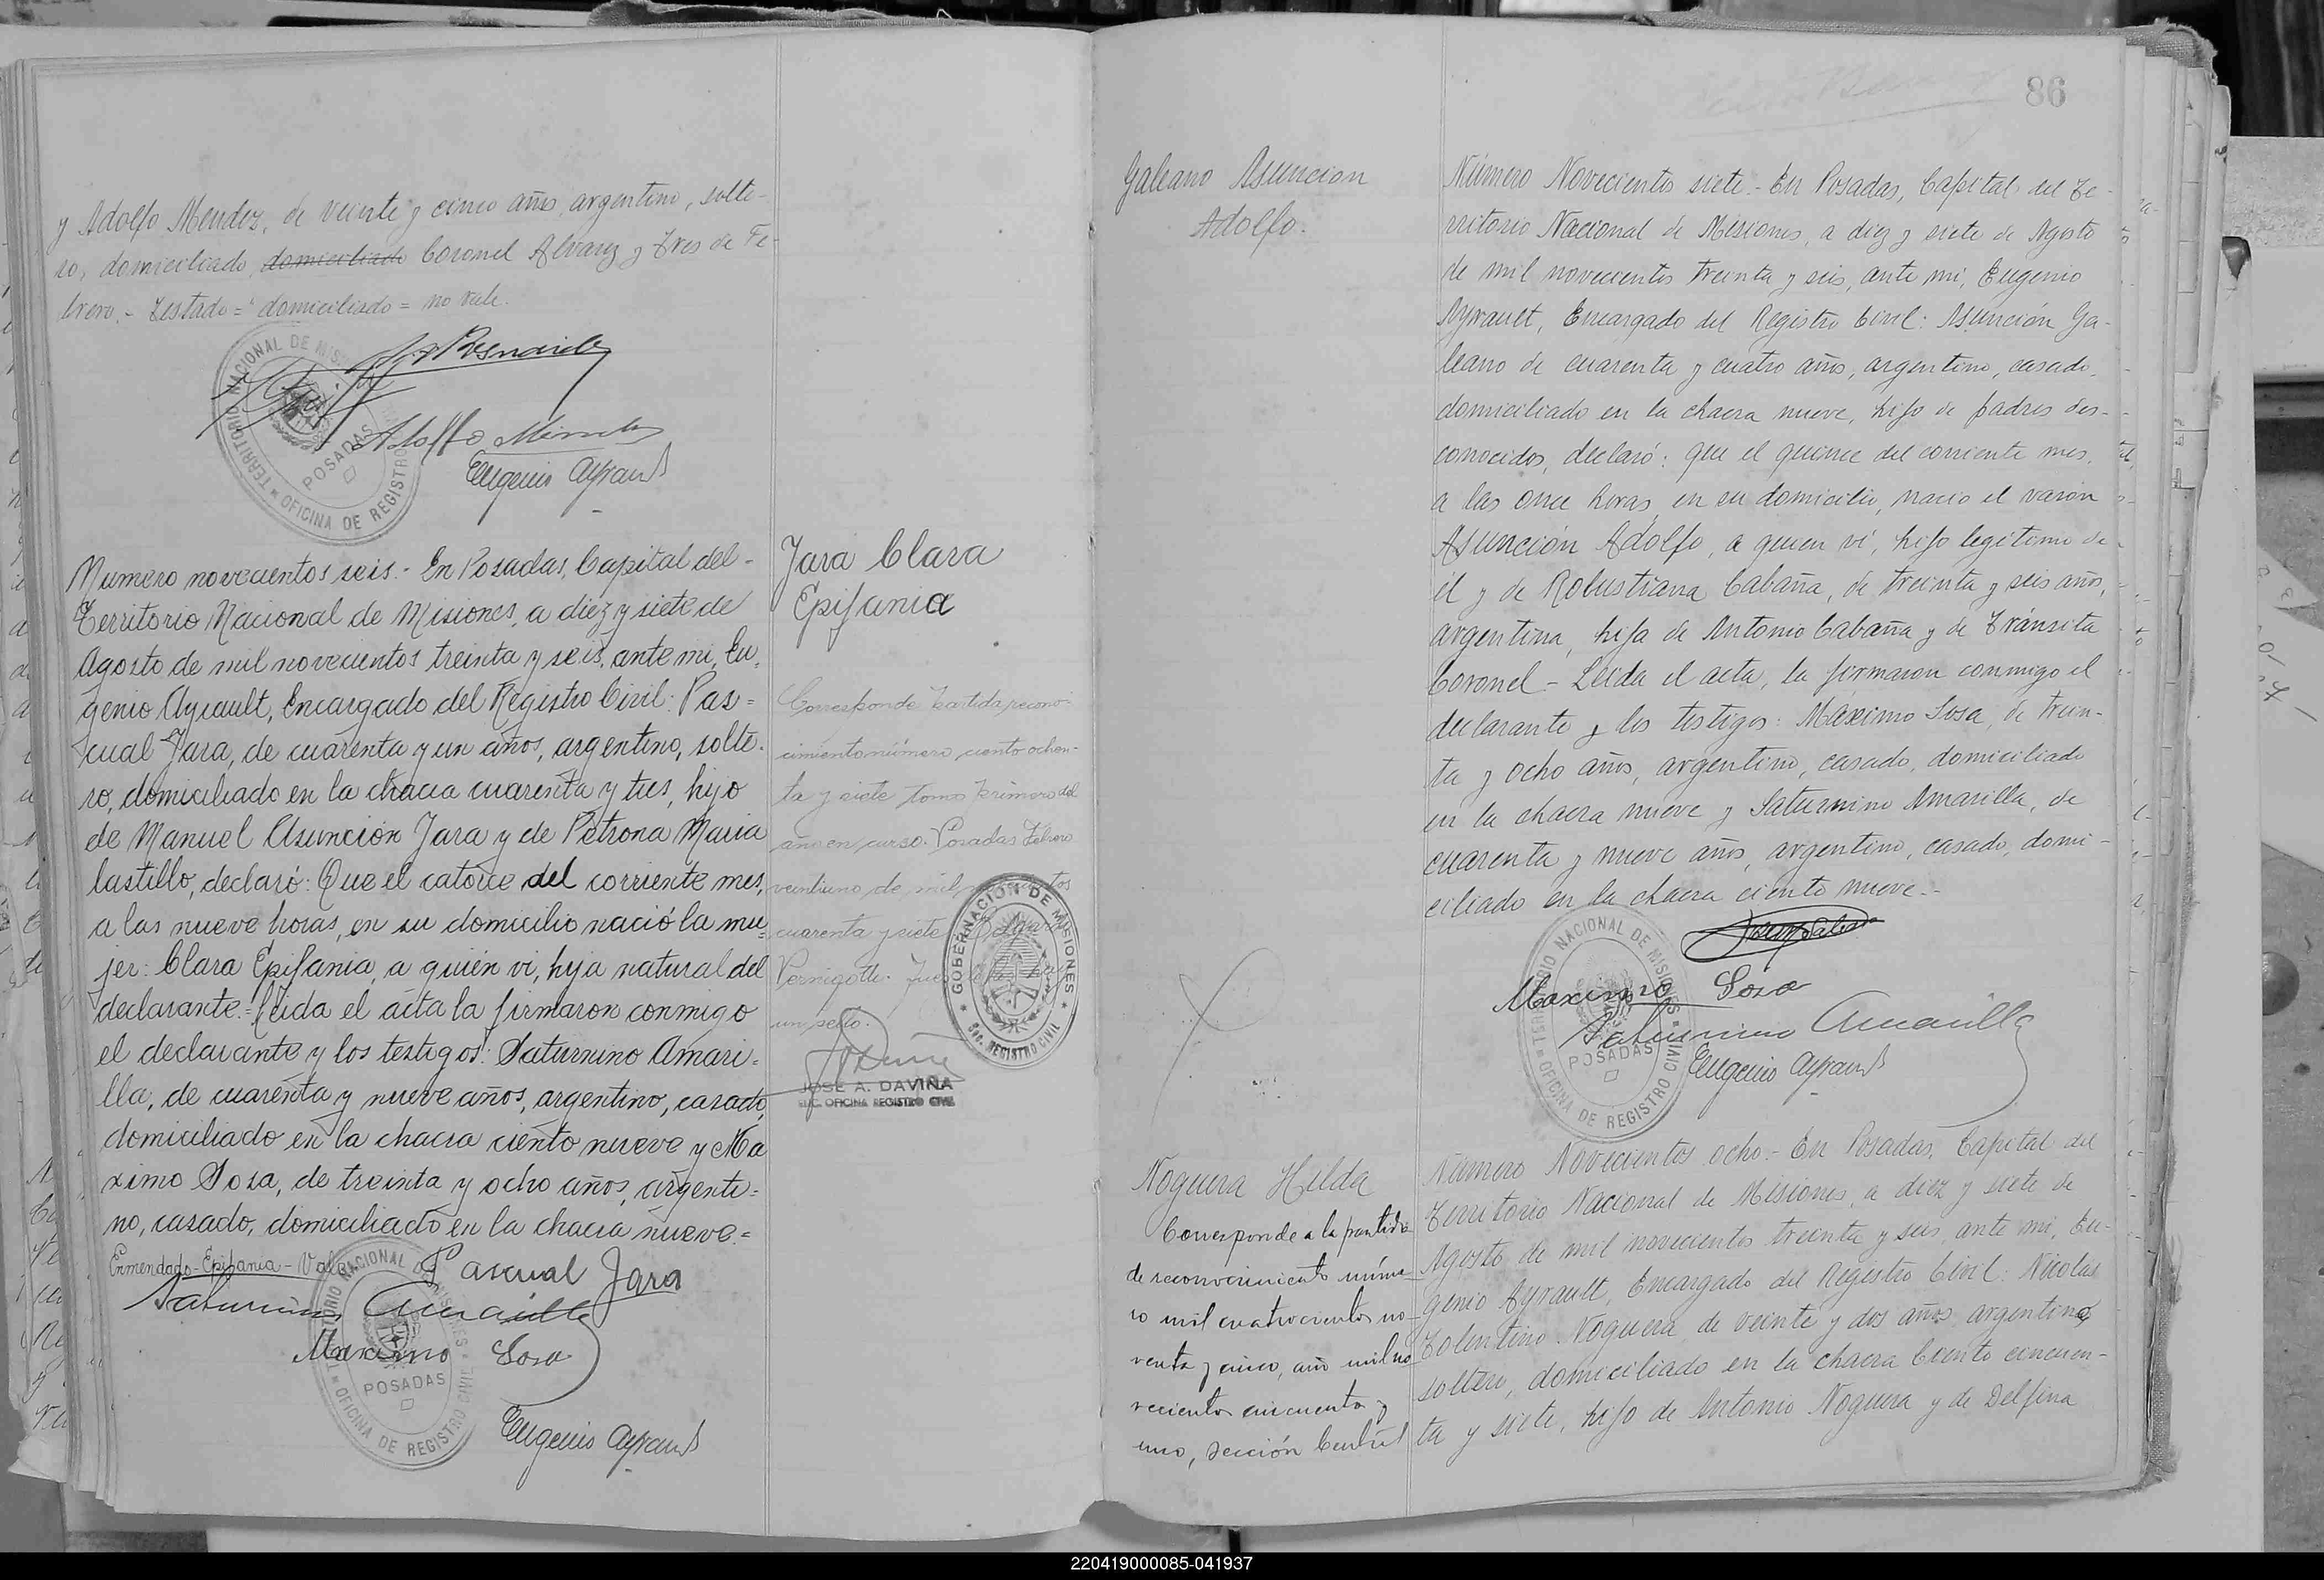 y Adolfo Mendez, de veinte y cinco años, argentino, solte-
ro, domiciliado, domiciliado Coronel Alvarez y Tres de Fe-
brero.- Testado="domiciliado= no vale.
TERRITORIO NACIONAL DE MISIONES
OFICINA DE REGISTRO
POSADAS
Adolfo Mendez
Eugenio Ayrault
Numero novecientos seis.- En Posadas, Capital del-
Territorio Nacional de Misiones, a diez y siete de
Agosto de mil novecientos treinta y seis, ante mi, Eu-
genio Ayrault, Encargado del Registro Civil: Pas=
cual Jara, de cuarenta y un años, argentino, solte-
ro, domiciliado en la chacra cuarenta y tres, hijo
de Manuel Asunción Jara y de Petrona Maria
Castillo, declaró: Que el catorce del corriente mes,
a las nueve horas, en su domicilio nació la mu=
jer: Clara Epifania, a quién vi, hija natural del
declarante.=Leida el acta la firmaron conmigo
el declarante y los testigos: Saturnino Amari=
lla, de cuarenta y nueve años, argentino, casado,
domiciliado en la chacra ciento nueve y Ma
ximo Sosa, de treinta y ocho años, argenti=
no, casado, domiciliado en la chacra nueve.=
Enmendado-Epifania-Vale
Pascual Jara
Saturnino Amarilla
Maximo Sosa
TERRITORIO NACIONAL DE MISIONES
OFICINA DE REGISTRO CIVIL
POSADAS
Eugenio Ayrault
Jara Clara
Epifania
Corresponde Partida recono-
cimiento número ciento ochen-
ta y siete tomo Primero del
año en curso. Posadas Febrero
veintiuno de mil novecientos
cuarenta y siete
Pernigotti.
un sello.
GOBERNACION DE MISIONES
REGISTRO CIVIL
JOSE A. DAVIÑA
ENC. OFICINA REGISTRO CIVIL
86
Galeano Asuncion
Adolfo.
Número Novecientos siete.- En Posadas, Capital del Te-
rritorio Nacional de Misiones, a diez y siete de Agosto
de mil novecientos treinta y seis, ante mi, Eugenio
Ayrault, Encargado del Registro Civil: Asunción Ga-
leano de cuarenta y cuatro años, argentino, casado,
domiciliado en la chacra nueve, hijo de padres des-
conocidos, declaró: que el quince del corriente mes,
a las once horas, en su domicilio, nació el varón
Asunción Adolfo, a quien ví, hijo legitimo de
él y de Robustiana Cabaña, de treinta y seis años,
argentina, hija de Antonio Cabaña y de Tránsita
Coronel- Leida el acta, la firmaron conmigo el
declarante y los testigos: Máximo Sosa, de trein-
ta y ocho años, argentino, casado, domiciliado
en la chacra nueve y Saturnino Amarilla, de
cuarenta y nueve años, argentino, casado, domi-
ciliado en la chacra ciento nueve.-
Maximo Sosa
Saturnino Amarilla
TERRITORIO NACIONAL DE MISIONES
OFICINA DE REGISTRO CIVIL
POSADAS
Eugenio Ayrault
Noguera Hilda
Corresponde a la partida
de reconocimiento núme-
ro mil cuatrocientos no-
venta y cinco, año mil no
vecientos cincuenta y
uno, sección Central
Número Novecientos ocho.- En Posadas, Capital del
Territorio Nacional de Misiones, a diez y siete de
Agosto de mil novecientos treinta y seis, ante mi, Eu-
genio Ayrault, Encargado del Registro Civil: Nicolas
Tolentino Noguera, de veinte y dos años, argentino,
soltero, domiciliado en la chacra Ciento cincuen-
ta y siete, hijo de Antonio Noguera y de Delfina
220419000085-041937